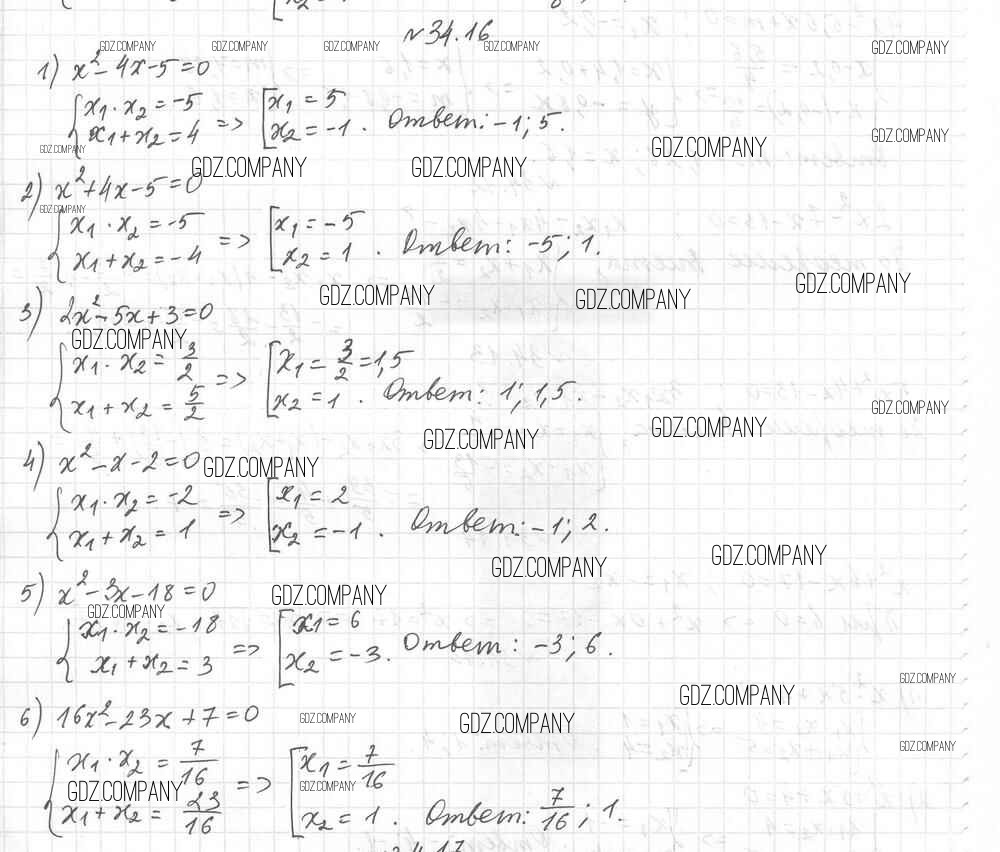 N 34.16
GDZ.COMPANY GDZ.COMPANY GDZ.COMPANY GDZ.COMPANY GDZ.COMPANY
1) x² - 4x - 5 = 0
x₁ · x₂ = -5 => x₁ = 5
x₁ + x₂ = 4 x₂ = -1. Ответ: -1; 5.
GDZ.COMPANY
GDZ.COMPANY GDZ.COMPANY GDZ.COMPANY GDZ.COMPANY
2) x² + 4x - 5 = 0
GDZ.COMPANY
x₁ · x₂ = -5 => x₁ = -5
x₁ + x₂ = -4 x₂ = 1. Ответ: -5; 1.
GDZ.COMPANY GDZ.COMPANY GDZ.COMPANY
3) 2x² - 5x + 3 = 0
GDZ.COMPANY
x₁ · x₂ = 3/2 => x₁ = 3/2 = 1,5
x₁ + x₂ = 5/2 x₂ = 1. Ответ: 1; 1,5.
GDZ.COMPANY GDZ.COMPANY GDZ.COMPANY
4) x² - x - 2 = 0 GDZ.COMPANY
x₁ · x₂ = -2 => x₁ = 2
x₁ + x₂ = 1 x₂ = -1. Ответ: -1; 2.
GDZ.COMPANY GDZ.COMPANY
5) x² - 3x - 18 = 0 GDZ.COMPANY
GDZ.COMPANY
x₁ · x₂ = -18 => x₁ = 6
x₁ + x₂ = 3 x₂ = -3. Ответ: -3; 6.
GDZ.COMPANY GDZ.COMPANY
6) 16x² - 23x + 7 = 0 GDZ.COMPANY GDZ.COMPANY
GDZ.COMPANY
x₁ · x₂ = 7/16 => x₁ = 7/16
GDZ.COMPANY GDZ.COMPANY
x₁ + x₂ = 23/16 x₂ = 1. Ответ: 7/16; 1.